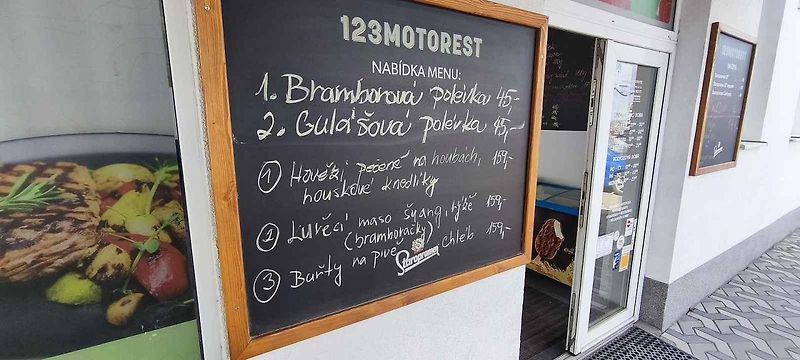 123MOTOREST
NABÍDKA MENU:
1. Bramborová polévka 45,-
2. Gulášová polévka 45,-
1 Hovězí pečené na houbách, 159,-
houskové knedlíky
2 Kuřecí maso šyang, rýže 159,-
(bramboráčky)
3 Buřty na pivě, chléb 159,-
Staropramen
123MOTOREST